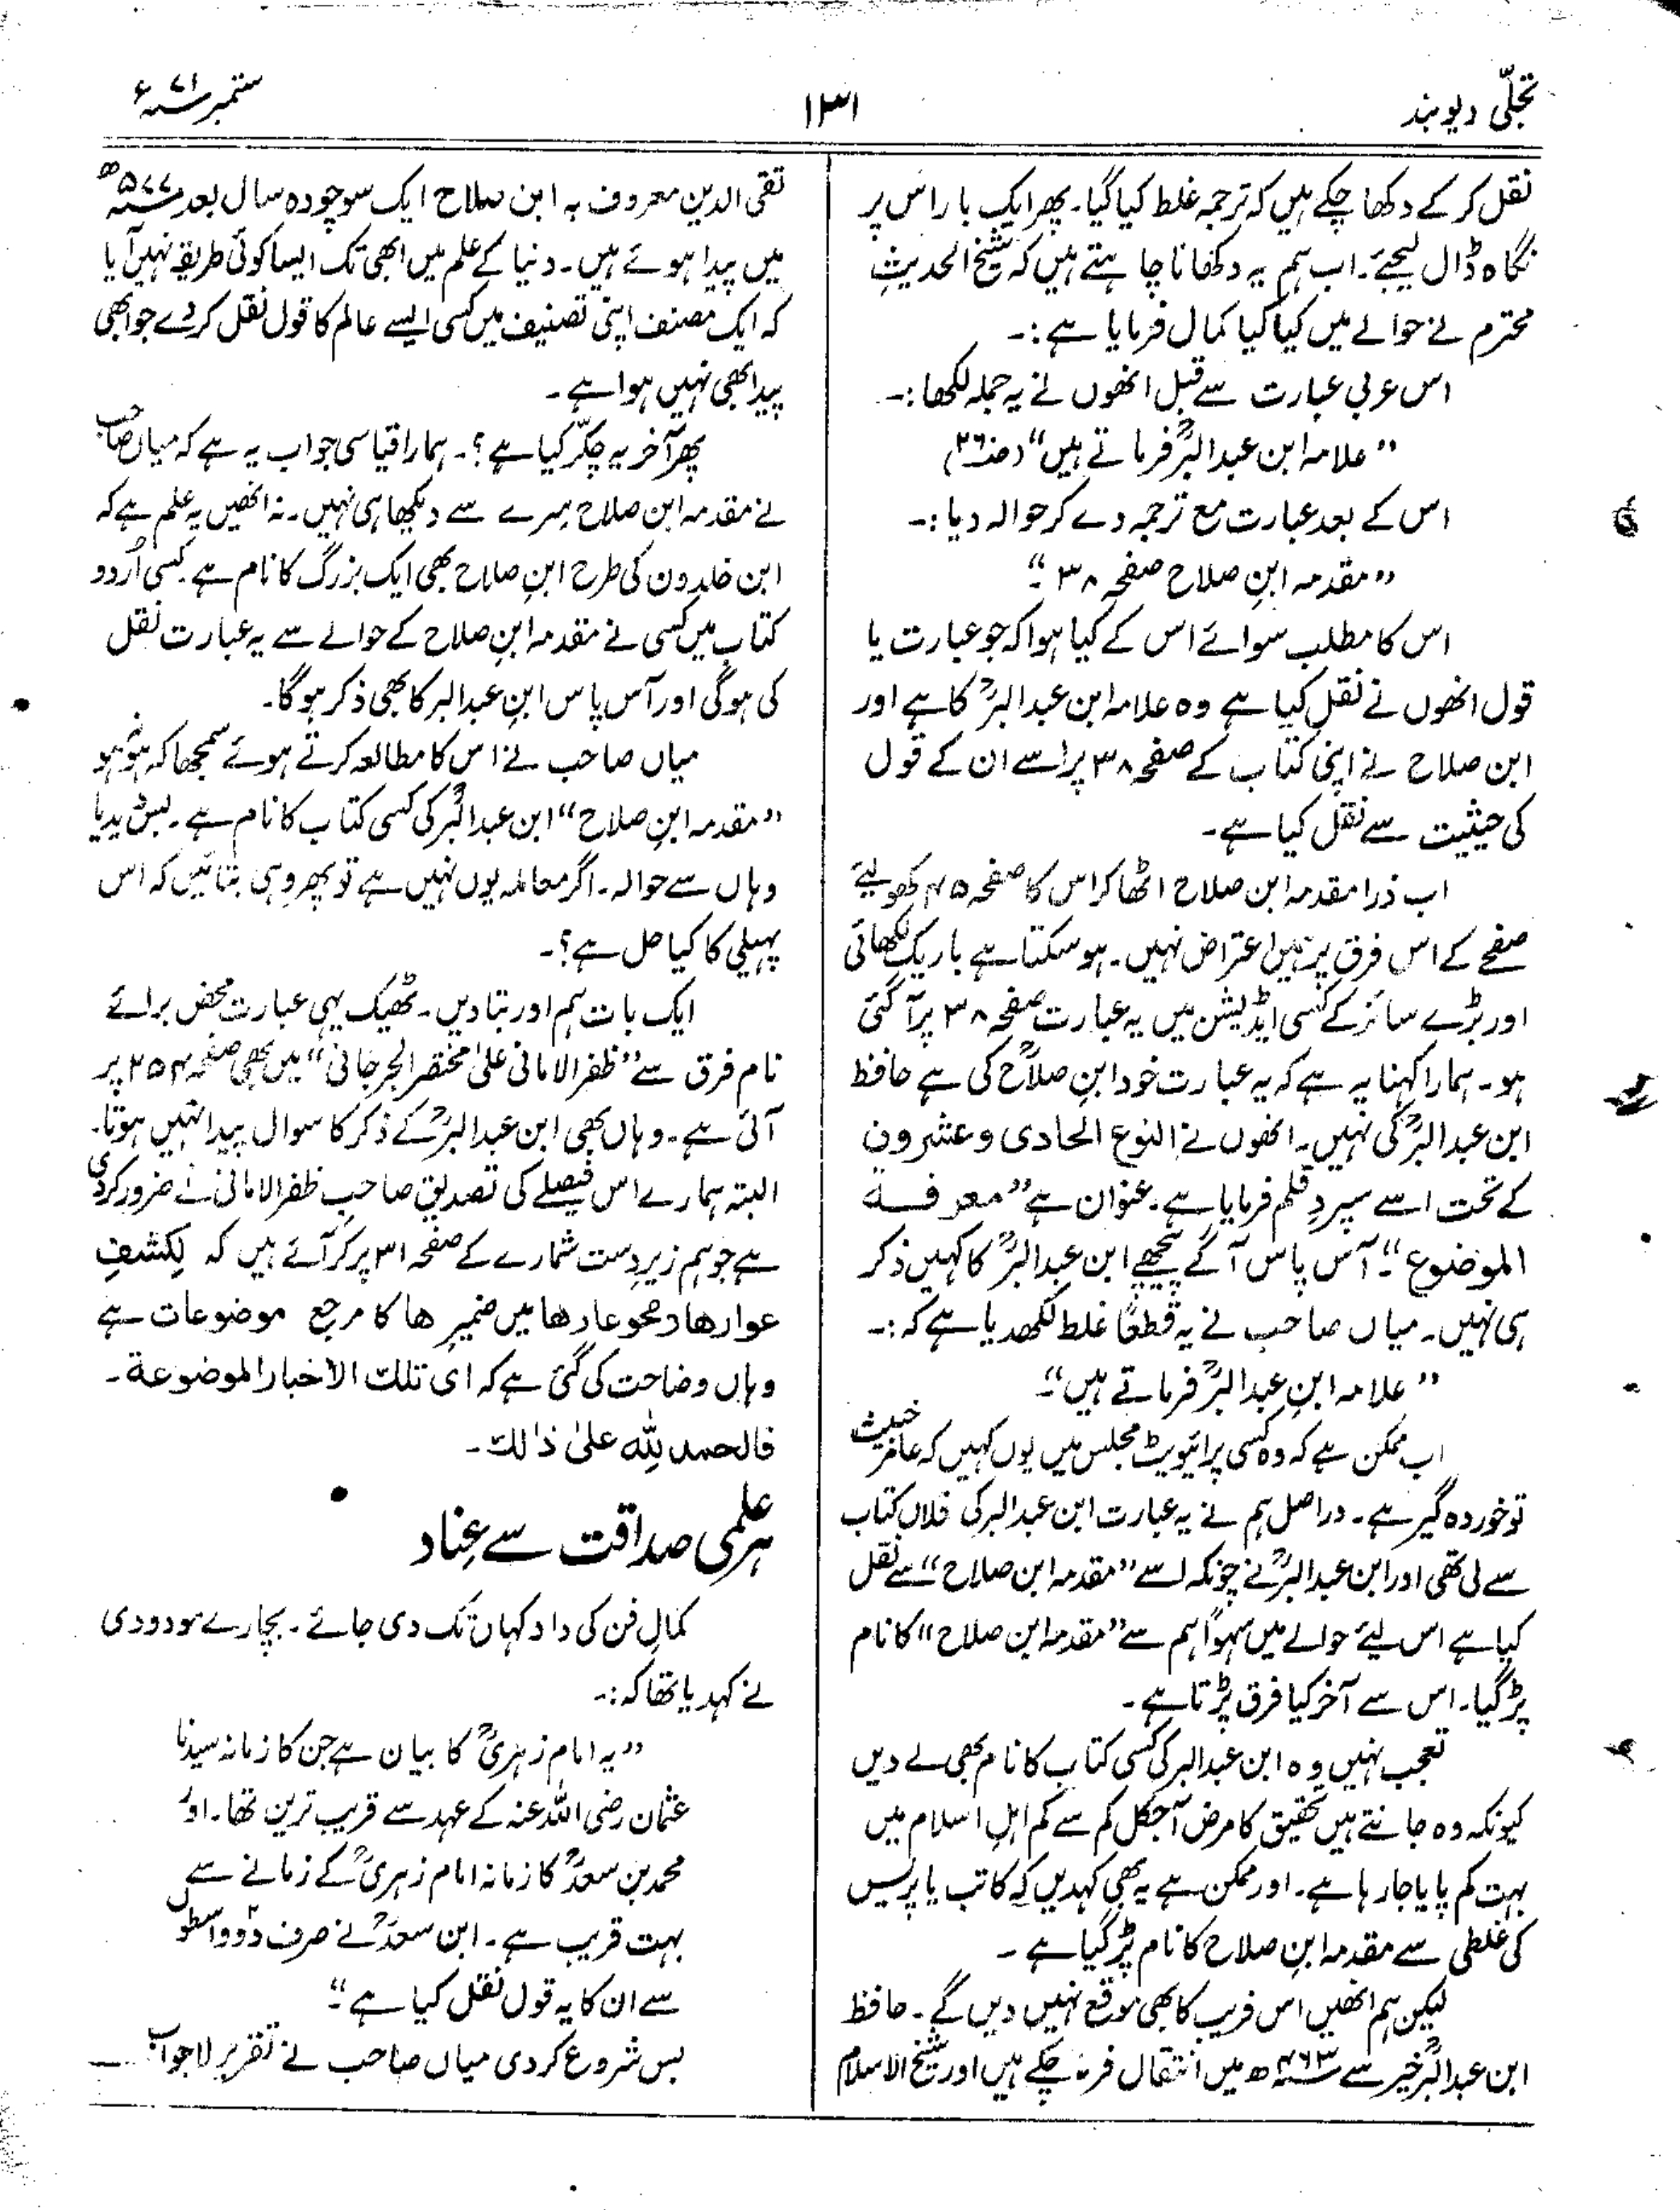 تجلّی دیوبند
۱۳۱
ستمبر ۷۱ء
نقل کر کے دکھا چکے ہیں کہ ترجمہ غلط کیا گیا۔ پھر ایک بار اس پر
نگاہ ڈال لیجئے۔ اب ہم یہ دکھانا چاہتے ہیں کہ شیخ الحدیثِ
محترم نے حوالے میں کیا کیا کمال فرمایا ہے:۔
اس عربی عبارت سے قبل انھوں نے یہ جملہ لکھا:۔
”علامہ ابن عبدالبرؒ فرماتے ہیں“ (ص۲۶)
اس کے بعد عبارت مع ترجمہ دے کر حوالہ دیا:۔
”مقدمہ ابنِ صلاح صفحہ ۳۸“
اس کا مطلب سوائے اس کے کیا ہوا کہ جو عبارت یا
قول انھوں نے نقل کیا ہے وہ علامہ ابن عبدالبرؒ کا ہے اور
ابن صلاح نے اپنی کتاب کے صفحہ ۳۸ پر اسے ان کے قول
کی حیثیت سے نقل کیا ہے۔
اب ذرا مقدمہ ابن صلاح اٹھا کر اس کا صفحہ ۴۵ کھولیئے
صفحے کے اس فرق پر ہمیں اعتراض نہیں۔ ہو سکتا ہے باریک لکھائی
اور بڑے سائز کے کسی ایڈیشن میں یہ عبارت صفحہ ۳۸ پر آ گئی
ہو۔ ہمارا کہنا یہ ہے کہ یہ عبارت خود ابنِ صلاحؒ کی ہے حافظ
ابن عبدالبرؒ کی نہیں۔ انھوں نے النوع الحادی وعشرون
کے تحت اسے سپردِ قلم فرمایا ہے۔ عنوان ہے ”معرفۃ
الموضوع“۔ آس پاس آگے پیچھے ابن عبدالبرؒ کا کہیں ذکر
ہی نہیں۔ میاں صاحب نے یہ قطعاً غلط لکھدیا ہے کہ:۔
”علامہ ابنِ عبدالبرؒ فرماتے ہیں“۔
اب ممکن ہے کہ وہ کسی پرائیویٹ مجلس میں یوں کہیں کہ عامر خبیث
تو خوردہ گیر ہے۔ دراصل ہم نے یہ عبارت ابن عبدالبر کی فلاں کتاب
سے لی تھی اور ابن عبدالبرؒ نے چونکہ اسے ”مقدمہ ابن صلاح“ سے نقل
کیا ہے اس لیئے حوالے میں سہواً ہم سے ”مقدمہ ابن صلاح“ کا نام
پڑ گیا۔ اس سے آخر کیا فرق پڑتا ہے۔
تعجب نہیں وہ ابن عبدالبر کی کسی کتاب کا نام بھی لے دیں
کیونکہ وہ جانتے ہیں تحقیق کا مرض آجکل کم سے کم اہلِ اسلام میں
بہت کم پایا جا رہا ہے۔ اور ممکن ہے یہ بھی کہدیں کہ کاتب یا پریس
کی غلطی سے مقدمہ ابنِ صلاح کا نام پڑ گیا ہے۔
لیکن ہم انھیں اس فریب کا بھی موقع نہیں دیں گے۔ حافظ
ابن عبدالبرؒ خیر سے ۴۶۳ھ میں انتقال فرما چکے ہیں اور شیخ الاسلام
تقی الدین معروف بہ ابن صلاح ایک سو چودہ سال بعد ۵۷۷ھ
میں پیدا ہوئے ہیں۔ دنیا کے علم میں ابھی تک ایسا کوئی طریقہ نہیں آیا
کہ ایک مصنف اپنی تصنیف میں کسی ایسے عالم کا قول نقل کر دے جو ابھی
پیدا بھی نہیں ہوا ہے۔
پھر آخر یہ چکّر کیا ہے؟۔ ہمارا قیاسی جواب یہ ہے کہ میاں صاحب
نے مقدمہ ابنِ صلاح سرے سے دیکھا ہی نہیں۔ نہ انھیں یہ علم ہے کہ
ابن خلدون کی طرح ابنِ صلاح بھی ایک بزرگ کا نام ہے۔ کسی اُردو
کتاب میں کسی نے مقدمہ ابنِ صلاح کے حوالے سے یہ عبارت نقل
کی ہوگی اور آس پاس ابنِ عبدالبر کا بھی ذکر ہوگا۔
میاں صاحب نے اس کا مطالعہ کرتے ہوئے سمجھا کہ ہو نہ ہو
”مقدمہ ابنِ صلاح“ ابن عبدالبرؒ کی کسی کتاب کا نام ہے۔ بس دیدیا
وہاں سے حوالہ۔ اگر معاملہ یوں نہیں ہے تو پھر وہی بتائیں کہ اس
پہیلی کا کیا حل ہے؟۔
ایک بات ہم اور بتا دیں۔ ٹھیک یہی عبارت محض برائے
نام فرق سے ”ظفر الامانی علیٰ مختصر الجرجانی“ میں بھی صفحہ ۲۵۴ پر
آئی ہے۔ وہاں بھی ابن عبدالبرؒ کے ذکر کا سوال پیدا نہیں ہوتا۔
البتہ ہمارے اس فیصلے کی تصدیق صاحبِ ظفر الامانی نے ضرور کردی
ہے جو ہم زیرِدست شمارے کے صفحہ ۳۱ پر کر آئے ہیں کہ لِکشفِ
عوارھا ومحوعارھا میں ضمیر ھا کا مرجع موضوعات ہے
وہاں وضاحت کی گئی ہے کہ ای تلک الاخبار الموضوعۃ۔
فالحمد للّٰہ علیٰ ذٰلک۔
ہر علمی صداقت سے عِناد
کمالِ فن کی داد کہاں تک دی جائے۔ بچارے مودودی
نے کہدیا تھا کہ:۔
”یہ امام زہریؒ کا بیان ہے جن کا زمانہ سیدنا
عثمان رضی اللہ عنہ کے عہد سے قریب ترین تھا۔ اور
محمد بن سعدؒ کا زمانہ امام زہریؒ کے زمانے سے
بہت قریب ہے۔ ابن سعدؒ نے صرف دو واسطوں
سے ان کا یہ قول نقل کیا ہے“۔
بس شروع کر دی میاں صاحب نے تقریر لاجواب